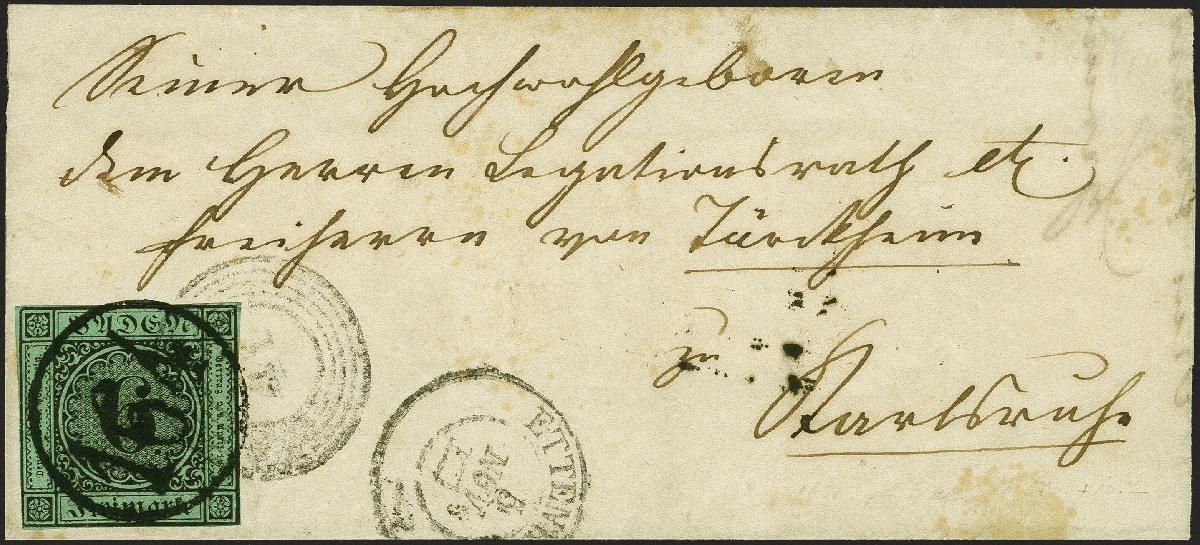 Seiner Hochwohlgeboren
dem Herren Legationsrath etc.
Freiherrn von Türckheim
zu
Karlsruhe
BADEN
6
Freimark
ETTEN
5 Nov